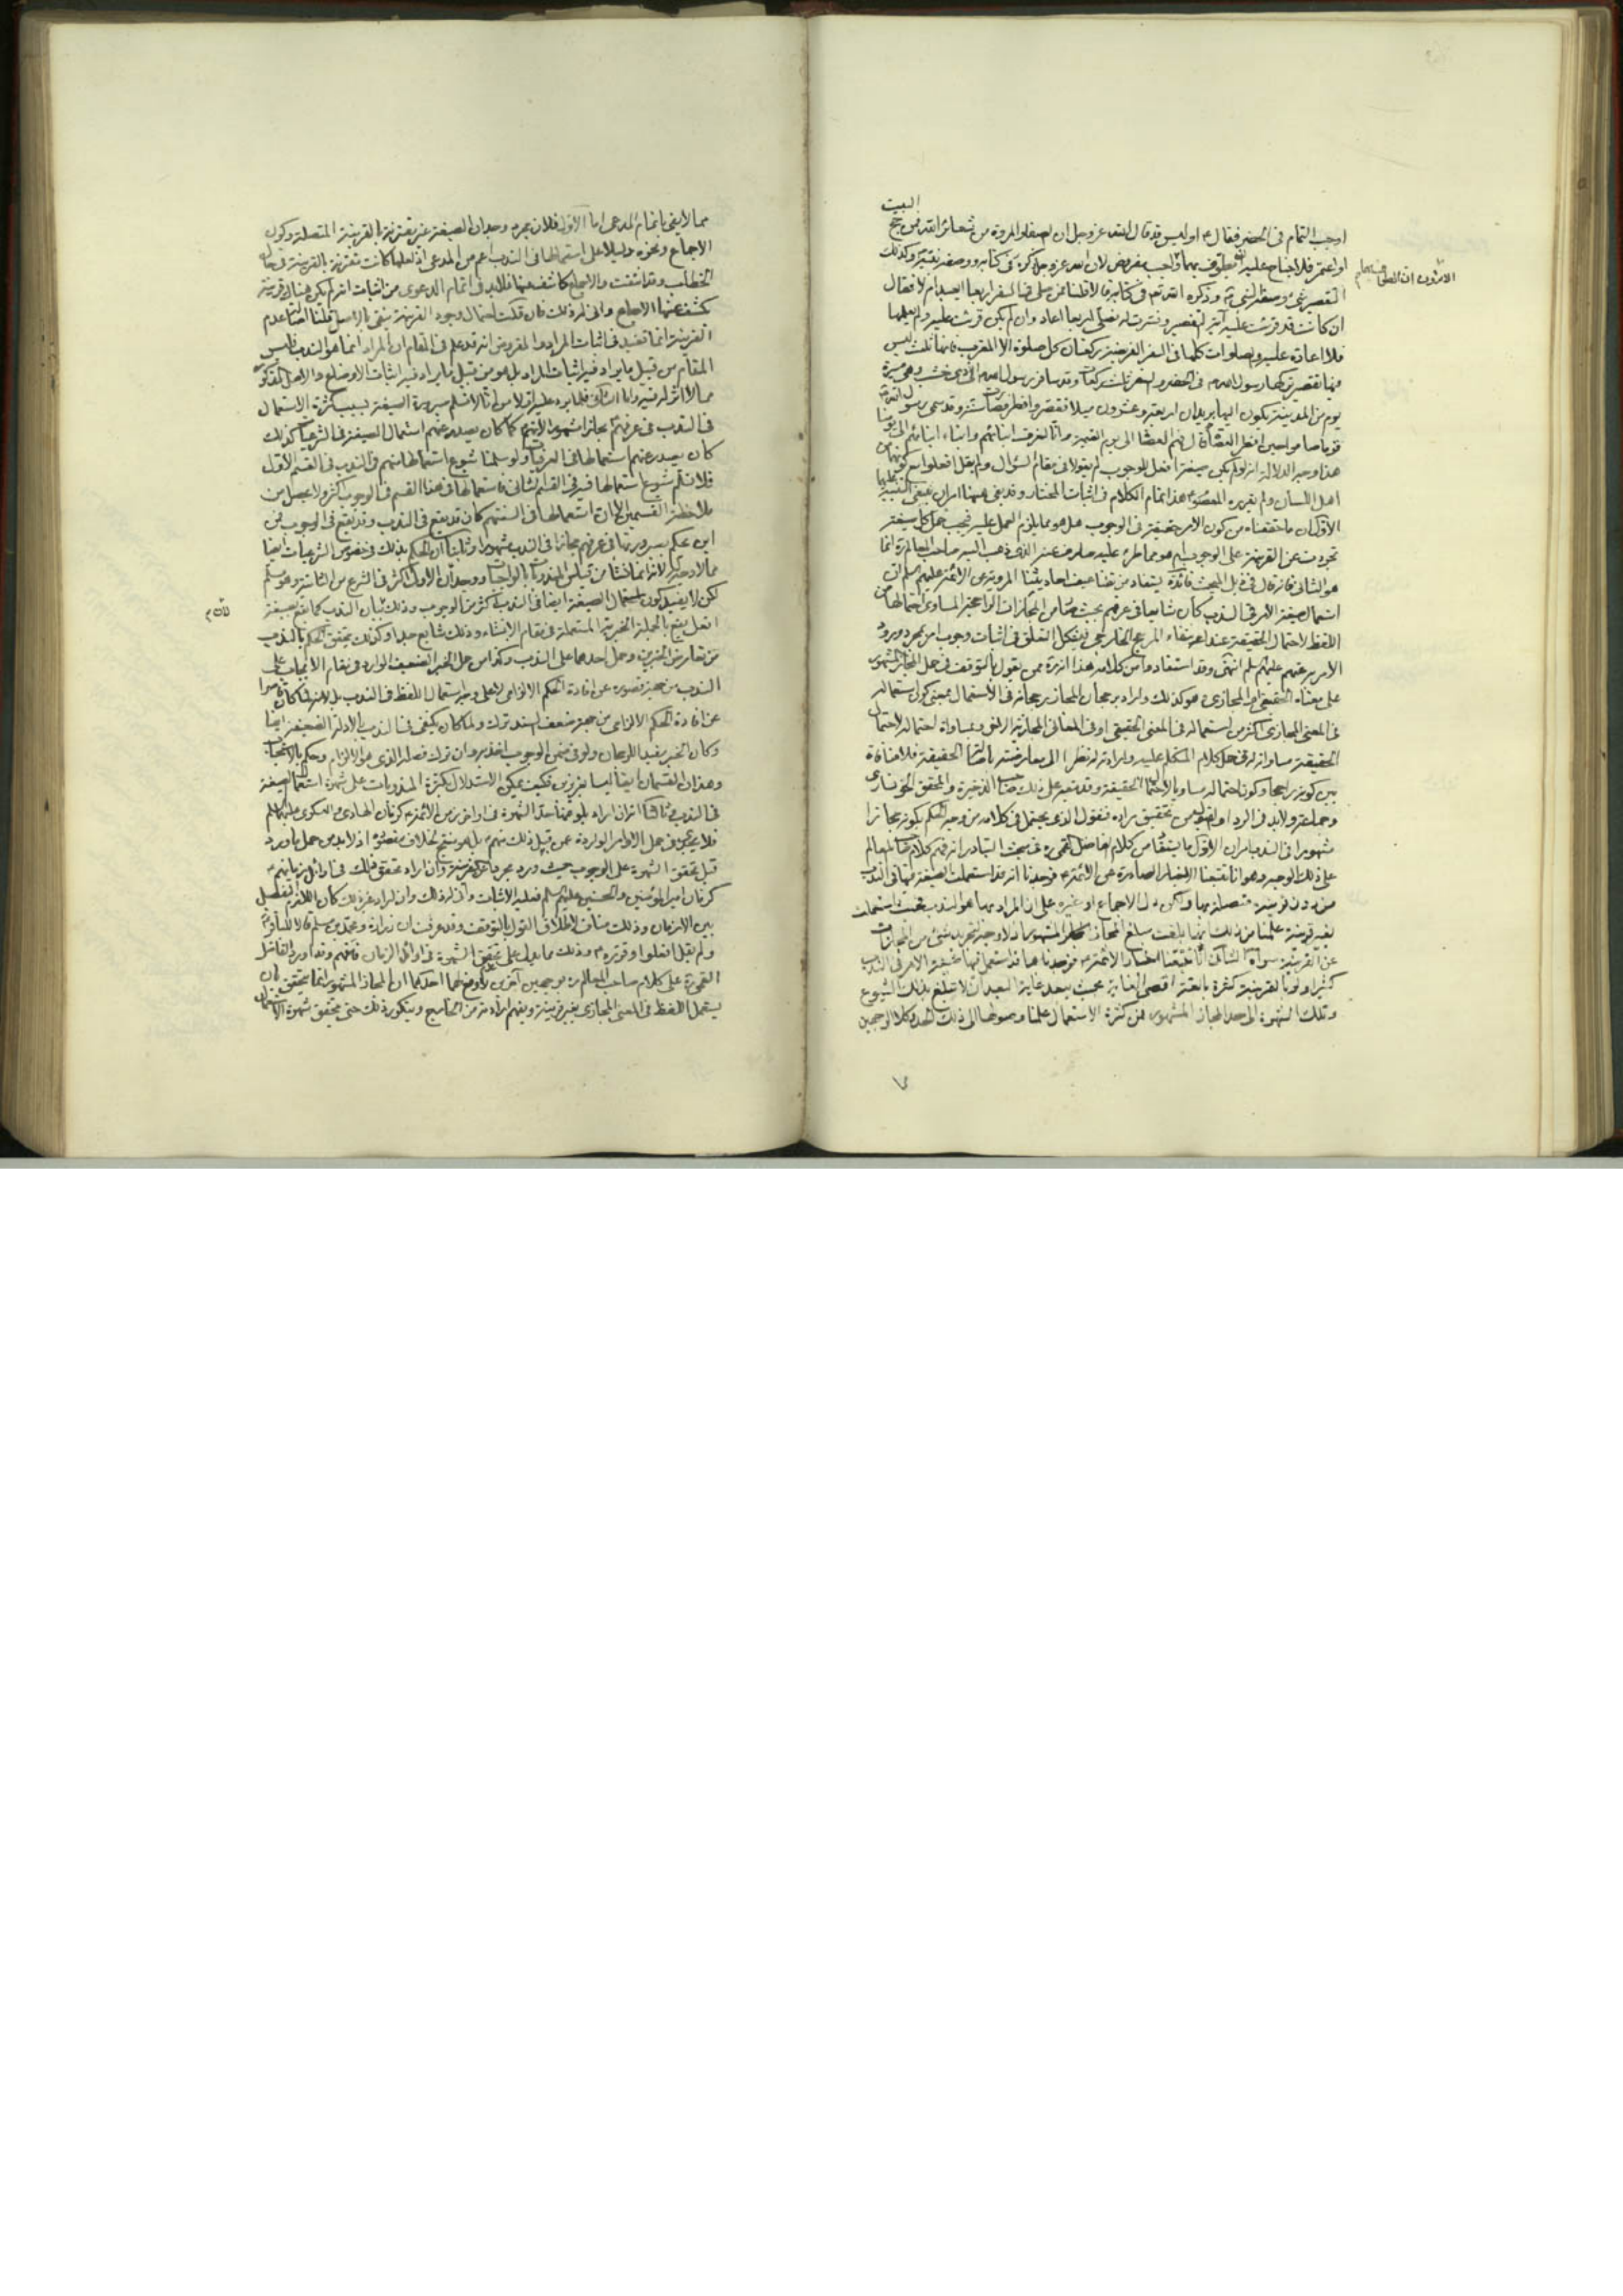 البيت
اوجب التمام فى الحضر فقال ع اوليس قد قال الله عز وجل ان الصفا والمروة من شعائر الله فمن حج
او اعتمر فلا جناح عليه ان يطوف بهما واجب مفروض لان الله عز وجل ذكره فى كتابه ووصفه نبيه وكذلك
الا ترون ان الطواف بهما
التقصير شىء وصنعه النبى ص وذكره الله تعالى فى كتابه قالا قلنا فمن صلى فى السفر اربعا ايعيد ام لا فقال
ان كانت قد قرئت عليه آية التقصير وفسرت له فصلى اربعا اعاد وان لم يكن قرئت عليه ولم يعلمها
فلا اعادة عليه والصلوات كلها فى السفر الفريضة ركعتان كل صلوة الا المغرب فانها ثلث ليس
فيها تقصير تركها رسول الله ص فى الحضر والسفر ثلث ركعات وقد سافر رسول الله ص الى ذى خشب وهى مسيرة
يوم من المدينة يكون اليها بريدان اربعة وعشرون ميلا فقصر وافطر فصارت سنة وقد سمى رسول الله ص
قوما صاموا حين افطر العصاة قال فهم العصاة الى يوم القيمة وانا لنعرف ابنائهم وابناء ابنائهم الى يومنا
هذا وجه الدلالة انه لو لم يكن صيغة افعل للوجوب لم يقولا فى مقام السؤال ولم يقل افعلوا مع كونهما من
اهل اللسان ولم يقرره المعصوم ع هذا تمام الكلام فى اثبات المختار وقد بقى هيهنا امران ينبغى التنبيه عليهما
الاول ان ما حققناه من كون الامر حقيقة فى الوجوب هل هو مما يلزم العمل عليه فيجب حمل كل صيغة
تجردت عن القرينة على الوجوب ام هو مما طرء عليه صارف عنه الذى ذهب اليه صاحب المعالم ره انما
هو الثانى فانه قال فى ذيل المبحث فائدة يستفاد من تضاعيف احاديثنا المروية عن الائمة عليهم السلم ان
استعمال صيغة الامر فى الندب كان شايعا فى عرفهم بحيث صار من المجازات الراجحة المساوى احتمالها من
اللفظ لاحتمال الحقيقة عند انتفاء المرجح الخارجى فيشكل التعلق فى اثبات وجوب امر بمجرد ورود
الامر به منهم عليهم السلم انتهى وقد استفاد من كلامه هذا انه ره ممن يقول بالتوقف فى حمل المجاز المشهور
على معناه الحقيقى او المجازى وهو كذلك واراد برجحان المجاز رجحانه فى الاستعمال بمعنى كون استعماله
فى المعنى المجازى اكثر من استعماله فى المعنى الحقيقى او فى المعانى المجازية الاخر وبمساواة احتماله لاحتمال
الحقيقة مساواته له فى حمل كلام المتكلم عليه وارادته له نظرا الى معارضته باصالة الحقيقة فلا منافاة
بين كونه راجحا وكون احتماله مساويا لاحتمال الحقيقة وقد تبعه على ذلك صاحب الذخيرة والمحقق الخونسارى
وجماعة ولابد فى الرد او القبول من تحقيق مراده فنقول الذى يحتمل فى كلامه من وجه الحكم بكونه مجازا
مشهورا فى الندب امران الاول ما يستفاد من كلام الفاضل القمى ره فى مبحث التبادر انه فهم كلام صاحب المعالم
على ذلك الوجه وهو انا تتبعنا الاخبار الصادرة عن الائمة ع فوجدنا انه قد استعملت الصيغة فيها فى الندب
من دون قرينة متصلة بها ولكن دل الاجماع او غيره على ان المراد بها هو الندب فحيث استعملت
بغير قرينة علمنا من ذلك انها بلغت مبلغ المجاز المشهور اذ لا وجه لتجريد شىء من المجازات
عن القرينة سواه الثانى انا تتبعنا اخبار الائمة ع فوجدناها قد استعمل فيها صيغة الامر فى الندب
كثيرا ولو بالقرينة كثرة بالغة اقصى الغاية بحيث يبعد غاية البعد ان لا تبلغ بذلك الشيوع
وتلك الشهرة الى حد المجاز المشهور فمن كثرة الاستعمال علمنا وصولها الى ذلك الحد وكلا الوجهين
مما لا يفى باتمام المدعى اما الاول فلان مجرد وجدان الصيغة غير مقترنة بالقرينة المتصلة وكون
الاجماع ونحوه دليلا على استعمالها فى الندب اعم من المدعى اذ لعلها كانت مقترنة بالقرينة فى حال
الخطاب وقد اختفت والاجماع كاشف عنها فلابد فى اتمام الدعوى من اثبات انه لم يكن هناك قرينة
يكشف عنها الاجماع وانى له ذلك فان قلت احتمال وجود القرينة ينفى بالاصل قلنا اصالة عدم
القرينة انما تفيد فى اثبات المراد والمفروض انه قد علم فى المقام ان المراد انما هو الندب فليس
المقام من قبيل ما يراد فيه اثبات المراد بل هو من قبيل ما يراد فيه اثبات الاوضاع والاصل المذكور
مما لا اثر له فيه واما الثانى فلما يرد عليه اولا من انا لا نسلم صيرورة الصيغة بسبب كثرة الاستعمال
فى الندب فى عرفهم مجازا مشهورا لانهم كما كان يصدر عنهم استعمال الصيغة فى الشرعيات كذلك
كان يصدر عنهم استعمالها فى العرفيات ولو سلمنا شيوع استعمالها منهم فى الندب فى القسم الاول
فلا نسلم شيوع استعمالها فيه فى القسم الثانى فاستعمالها فى هذا القسم فى الوجوب اكثر ولا يحصل من
ملاحظة القسمين الا ان استعمالها فى السنتهم كان قد يقع فى الندب وقد يقع فى الوجوب فمن
اين يحكم بصيرورتها فى عرفهم مجازا فى الندب مشهورا وثانيا ان الحكم بذلك فى خصوص الشرعيات ايضا
مما لا وجه له لانه انما نشأ من قياس المندوبات بالواجبات ووجدان الاول اكثر فى الشرع من الثانية وهو مسلم
لكن لا يفيد كون استعمال الصيغة ايضا فى الندب اكثر من الوجوب وذلك لان بيان الندب كما يقع بصيغة
افعل يقع بالجملة الخبرية المستعملة فى مقام الانشاء وذلك شايع جدا وكذلك يتحقق الحكم بالندب
من تعارض الخبرين وحمل احدهما على الندب وكذا من حمل الخبر الضعيف الوارد فى مقام الايجاب على
الندب من جهة قصوره عن افادة الحكم الالزامى لا على وجه استعمال اللفظ فى الندب بل لانه لما كان قاصرا
عن افادة الحكم الالزامى من جهة ضعف السند ترك ولما كان يكتفى فى الندب بالادلة الضعيفة ايضا
وكان الخبر مفيدا للرجحان ولو فى ضمن الوجوب اخذ به وان ترك فصله الذى هو الالزام وحكم بالاستحباب
وهذان القسمان ايضا ليسا بعزيزين فكيف يمكن الاستدلال بكثرة المندوبات على شهرة استعمال الصيغة
فى الندب وثالثا انه ان اراد بلوغها حد الشهرة فى اواخر زمن الائمة ع كزمان الهادى والعسكرى عليهما السلم
فلا يجدى فى حمل الاوامر الواردة عمن قبل ذلك منهم ع بل هو منتج لخلاف مقصوده اذ لابد من حمل ما ورد
قبل تحقق الشهرة على الوجوب حيث ورد مجردا عن القرينة وان اراد تحقق ذلك فى اوائل زمانهم ع
كزمان امير المؤمنين والحسنين عليهم السلم فعليه الاثبات وانى له ذلك وان اراد غير ذلك كان اللازم التفصيل
بين الازمان وذلك مناف لاطلاق القول بالتوقف وقد عرفت ان زرارة ومحمد بن مسلم قالا للباقر ع
ولم يقل افعلوا وقرره ع وذلك مما يدل على عدم تحقق الشهرة فى اوائل الزمان فافهم وقد اورد الفاضل
القمى ره على كلام صاحب المعالم ره بوجهين آخرين لا وقع لهما احدهما ان المجاز المشهور انما يتحقق بان
يستعمل اللفظ فى المعنى المجازى بغير قرينة ويفهم ارادته من الخارج ويتكرر ذلك حتى يتحقق شهرة الاستعمال